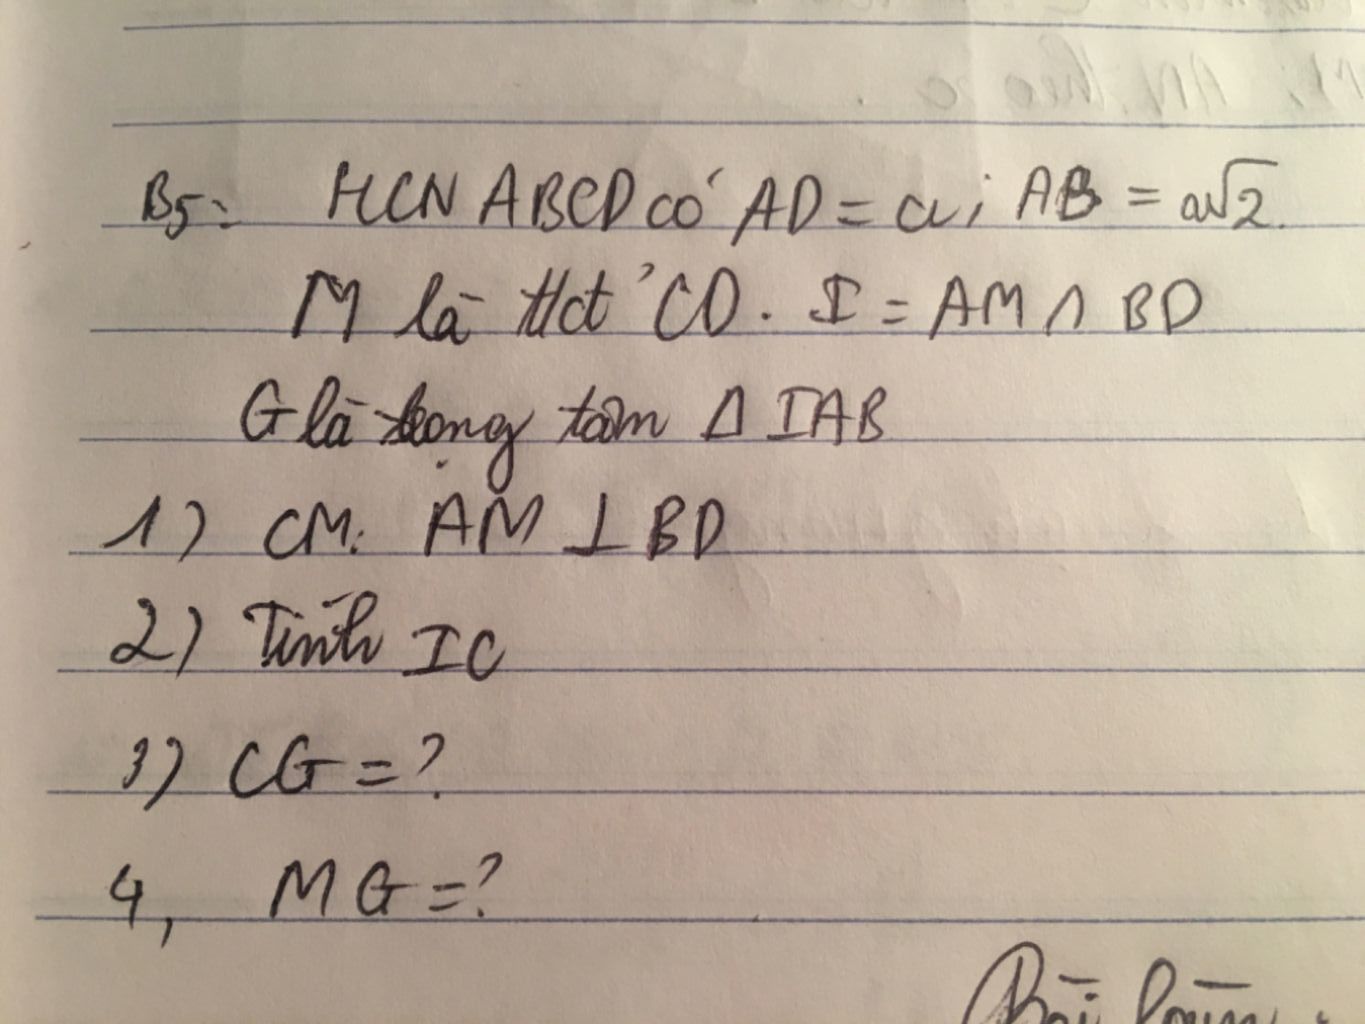 B5: HCN ABCD có AD = a; AB = a√2.
M là tđ CD. I = AM ∩ BD
G là trọng tâm Δ IAB
1) CM: AM ⊥ BD
2) Tính IC
3) CG = ?
4, MG = ?
Bài làm: